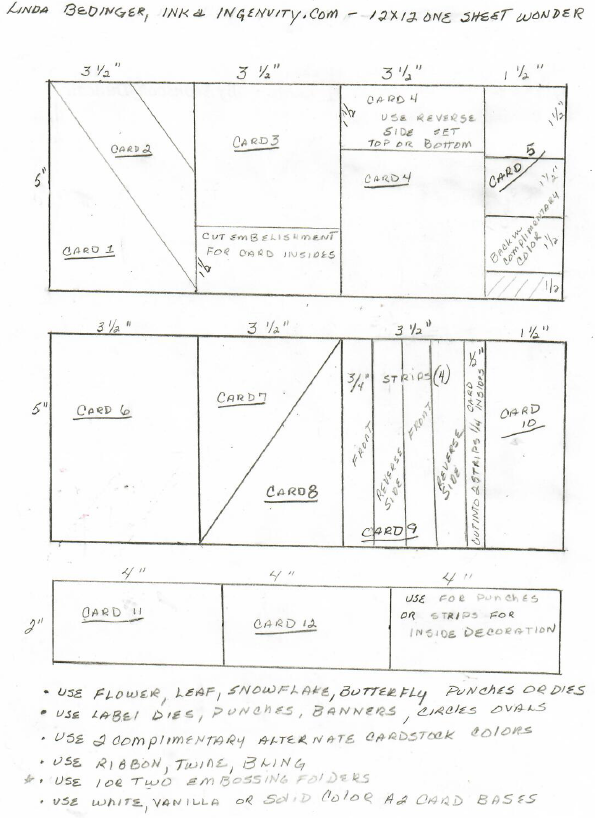 LINDA BEDINGER, INK & INGENUITY.COM - 12X12 ONE SHEET WONDER
3 ½" 3 ½" 3 ½" 1 ½"
5"
CARD 1
CARD 2
CARD 3
CUT EMBELISHMENT
FOR CARD INSIDES
1 ½
1 ½"
CARD 4
USE REVERSE
SIDE SET
TOP OR BOTTOM
CARD 4
1 ½"
CARD 5
1 ½"
BACK IN
COMPLIMENTARY
COLOR
1 ½
½
3 ½" 3 ½" 3 ½" 1 ½"
5"
CARD 6
CARD 7
CARD 8
3/4" STRIPS (4)
FRONT
REVERSE
SIDE
FRONT
REVERSE
SIDE
CARD 9
½"
CUT INTO 2 STRIPS 1/4 CARD
INSIDES
CARD
10
4" 4" 4"
2"
CARD 11
CARD 12
USE FOR PUNCHES
OR STRIPS FOR
INSIDE DECORATION
• USE FLOWER, LEAF, SNOWFLAKE, BUTTERFLY PUNCHES OR DIES
• USE LABEL DIES, PUNCHES, BANNERS, CIRCLES OVALS
• USE 2 COMPLIMENTARY ALTERNATE CARDSTOCK COLORS
• USE RIBBON, TWINE, BLING
*• USE 1 OR TWO EMBOSSING FOLDERS
• USE WHITE, VANILLA OR SOLID COLOR A2 CARD BASES